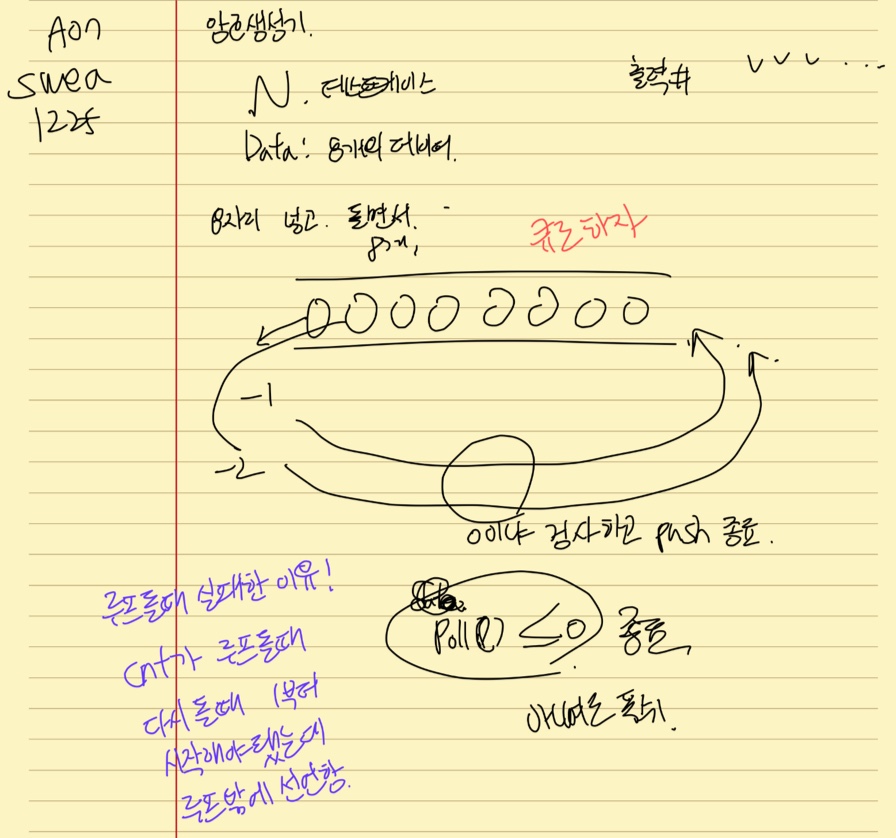 A07
swea
1225
암호생성기.
N. 테스트케이스
Data: 8개의 더미여.
출력 #
8자리 넣고. 돌면서.
8개,
큐로하자
-1
-2
0이냐 검사하고 push 종료.
Poll() ≤ 0 종료
아니면 돌기.
루프돌때 실패한 이유!
cnt가 루프돌때
다시 돌때 1부터
시작해야됐는데
루프밖에 선언함.